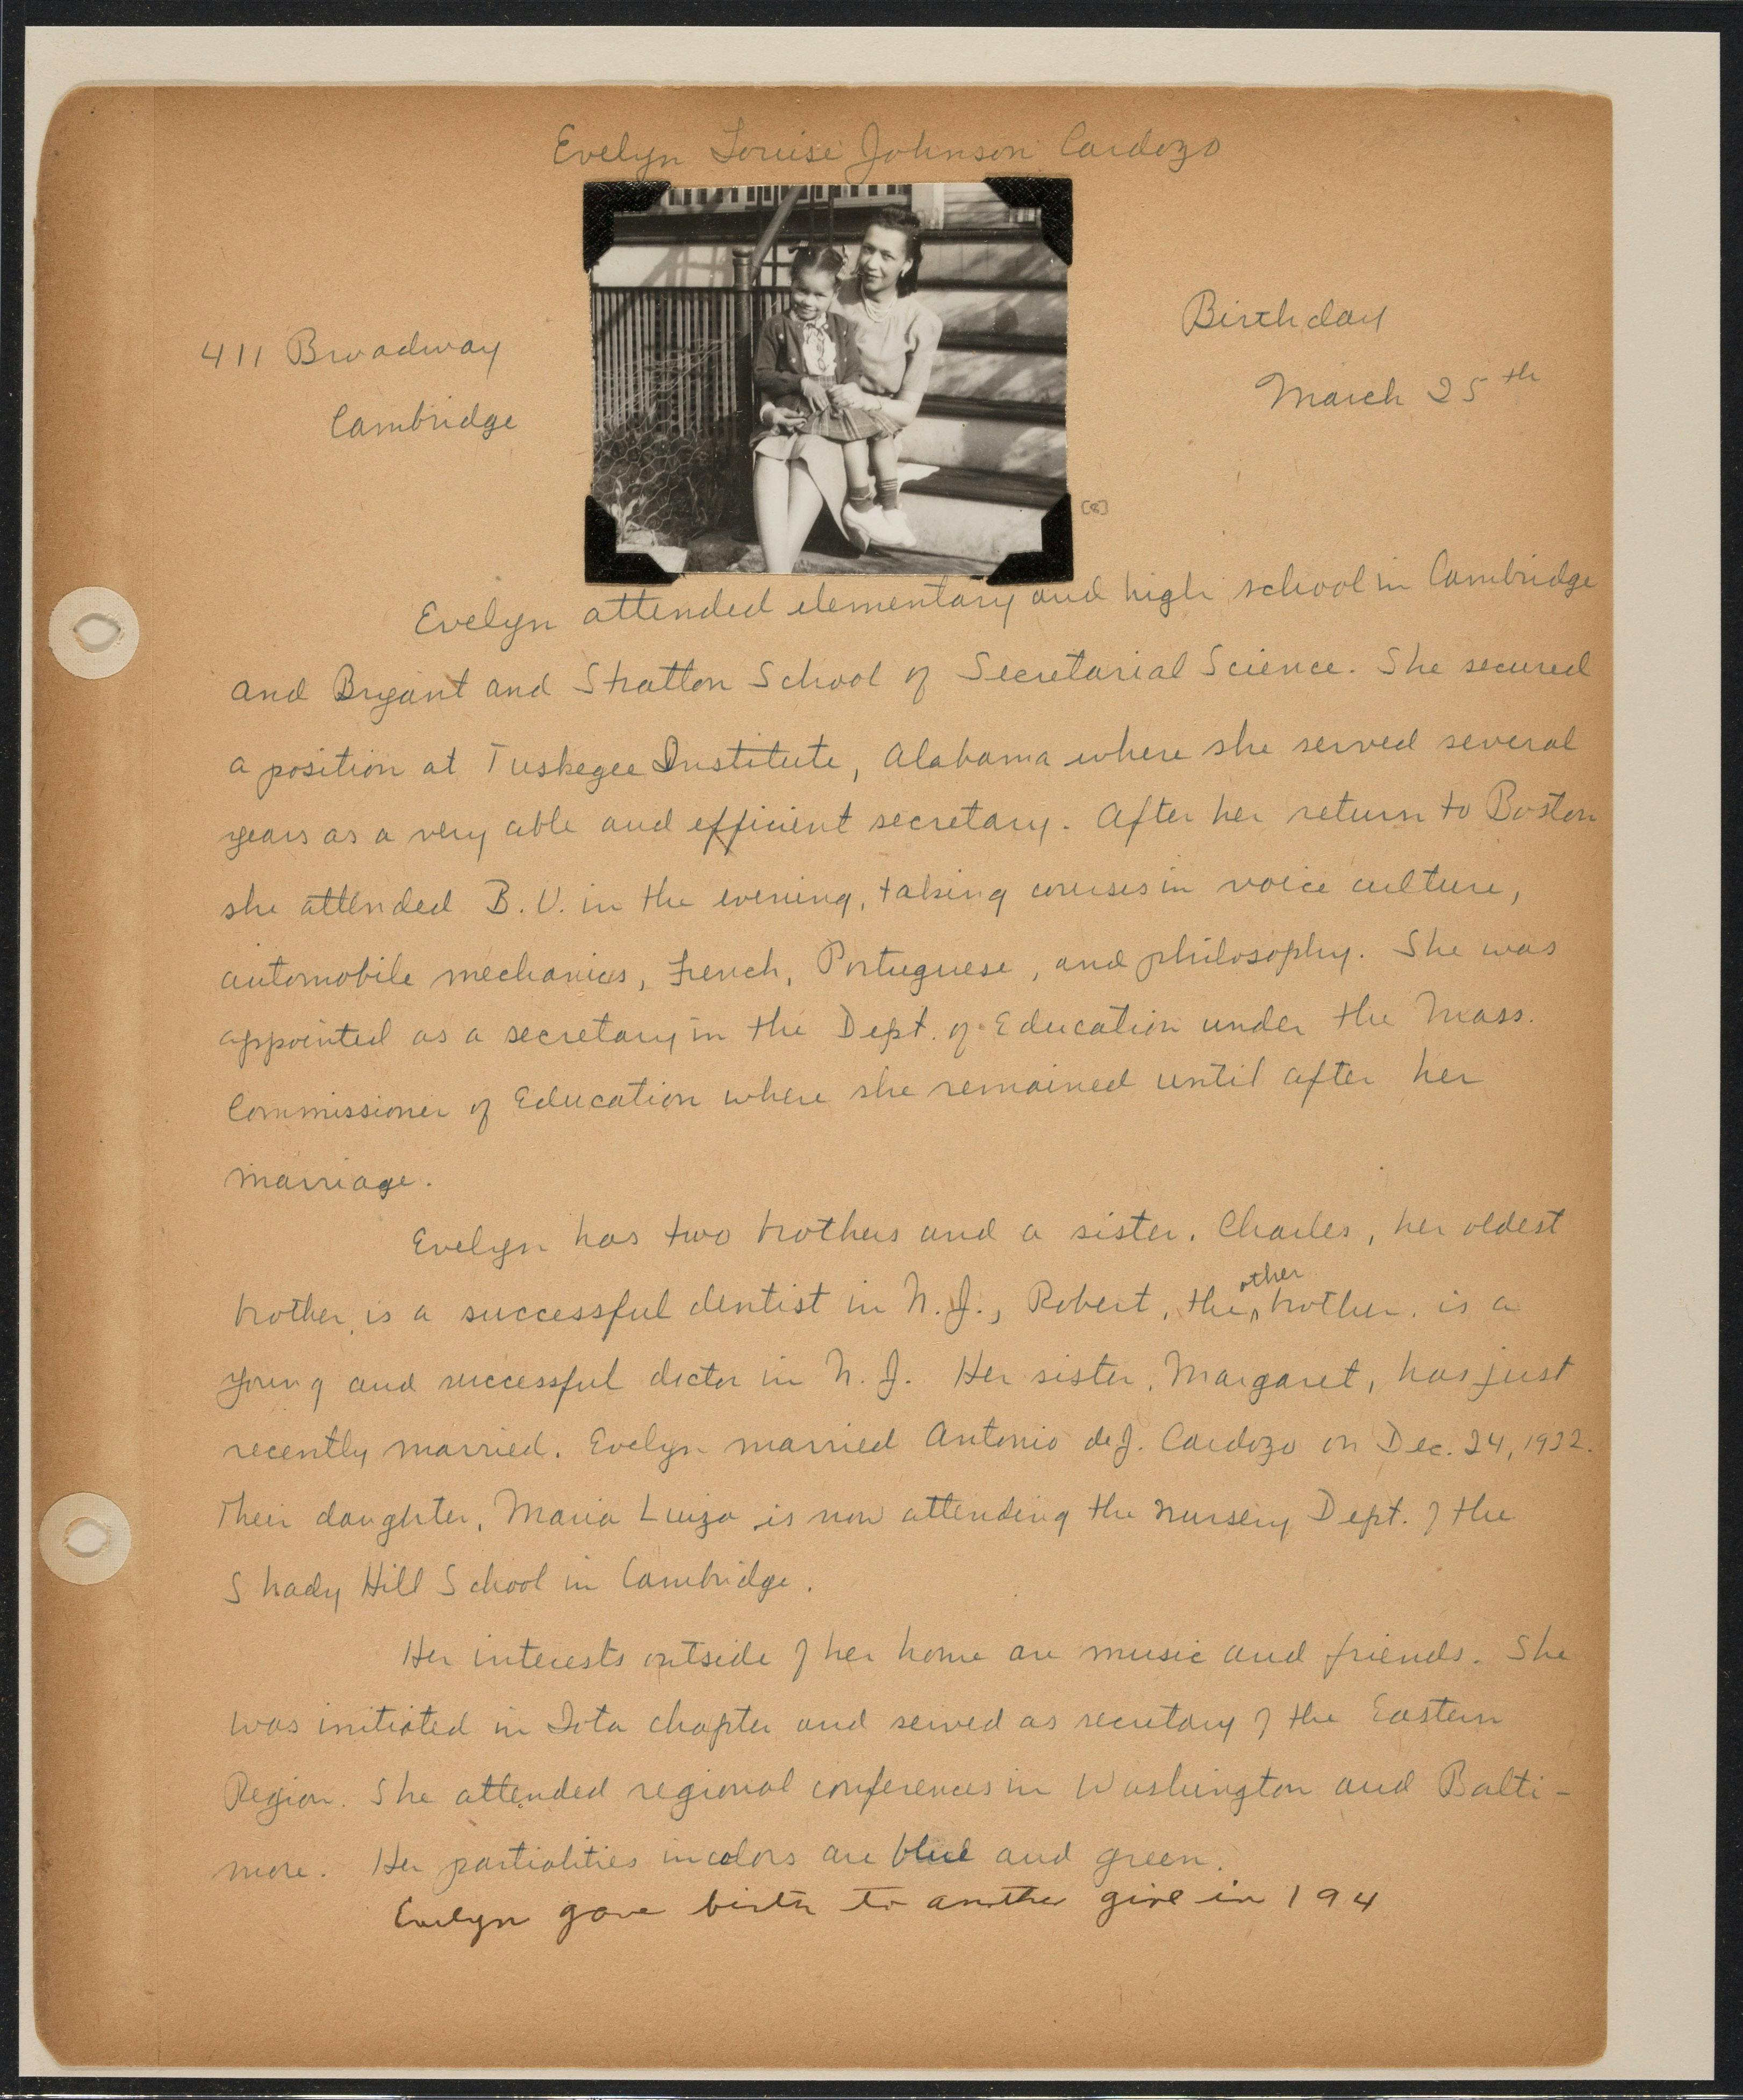 Evelyn Louise Johnson Cardozo
411 Broadway
Cambridge
Birthday
March 25th
[8]
Evelyn attended elementary and high school in Cambridge
and Bryant and Stratton School of Secretarial Science. She secured
a position at Tuskegee Institute, Alabama where she served several
years as a very able and efficient secretary. After her return to Boston
she attended B.U. in the evening, taking courses in voice culture,
automobile mechanics, French, Portuguese, and philosophy. She was
appointed as a secretary in the Dept. of Education under the Mass.
Commissioner of Education where she remained until after her
marriage.
Evelyn has two brothers and a sister. Charles, her oldest
other
brother, is a successful dentist in N.J., Robert, the brother, is a
young and successful doctor in N.J. Her sister, Margaret, has just
recently married. Evelyn married Antonio deJ. Cardozo on Dec. 24, 1932.
Their daughter, Maria Luiza is now attending the Nursery Dept. of the
Shady Hill School in Cambridge.
Her interests outside of her home are music and friends. She
was initiated in Iota chapter and served as secretary of the Eastern
Region. She attended regional conferences in Washington and Balti-
more. Her partialities in colors are blue and green.
Evelyn gave birth to another girl in 194